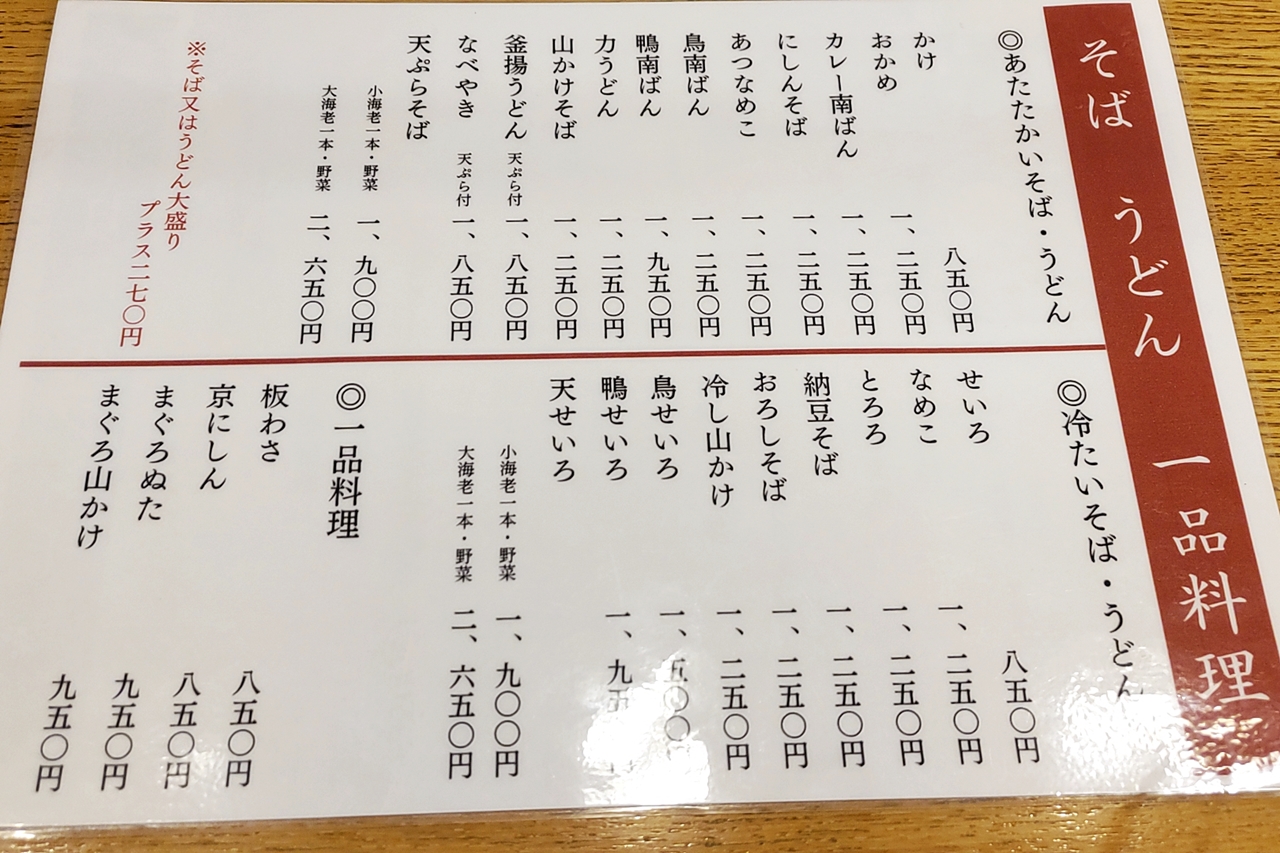 そば うどん 一品料理
◎あたたかいそば・うどん
かけ 八五〇円
おかめ 一、二五〇円
カレー南ばん 一、二五〇円
にしんそば 一、二五〇円
あつなめこ 一、二五〇円
鳥南ばん 一、二五〇円
鴨南ばん 一、九五〇円
力うどん 一、二五〇円
山かけそば 一、二五〇円
釜揚うどん 天ぷら付 一、八五〇円
なべやき 天ぷら付 一、八五〇円
天ぷらそば
小海老一本・野菜 一、九〇〇円
大海老一本・野菜 二、六五〇円
※そば又はうどん大盛り
プラス二七〇円
◎冷たいそば・うどん
せいろ 八五〇円
なめこ 一、二五〇円
とろろ 一、二五〇円
納豆そば 一、二五〇円
おろしそば 一、二五〇円
冷し山かけ 一、二五〇円
鳥せいろ 一、五〇〇円
鴨せいろ 一、九五
天せいろ
小海老一本・野菜 一、九〇〇円
大海老一本・野菜 二、六五〇円
◎一品料理
板わさ 八五〇円
京にしん 八五〇円
まぐろぬた 九五〇円
まぐろ山かけ 九五〇円